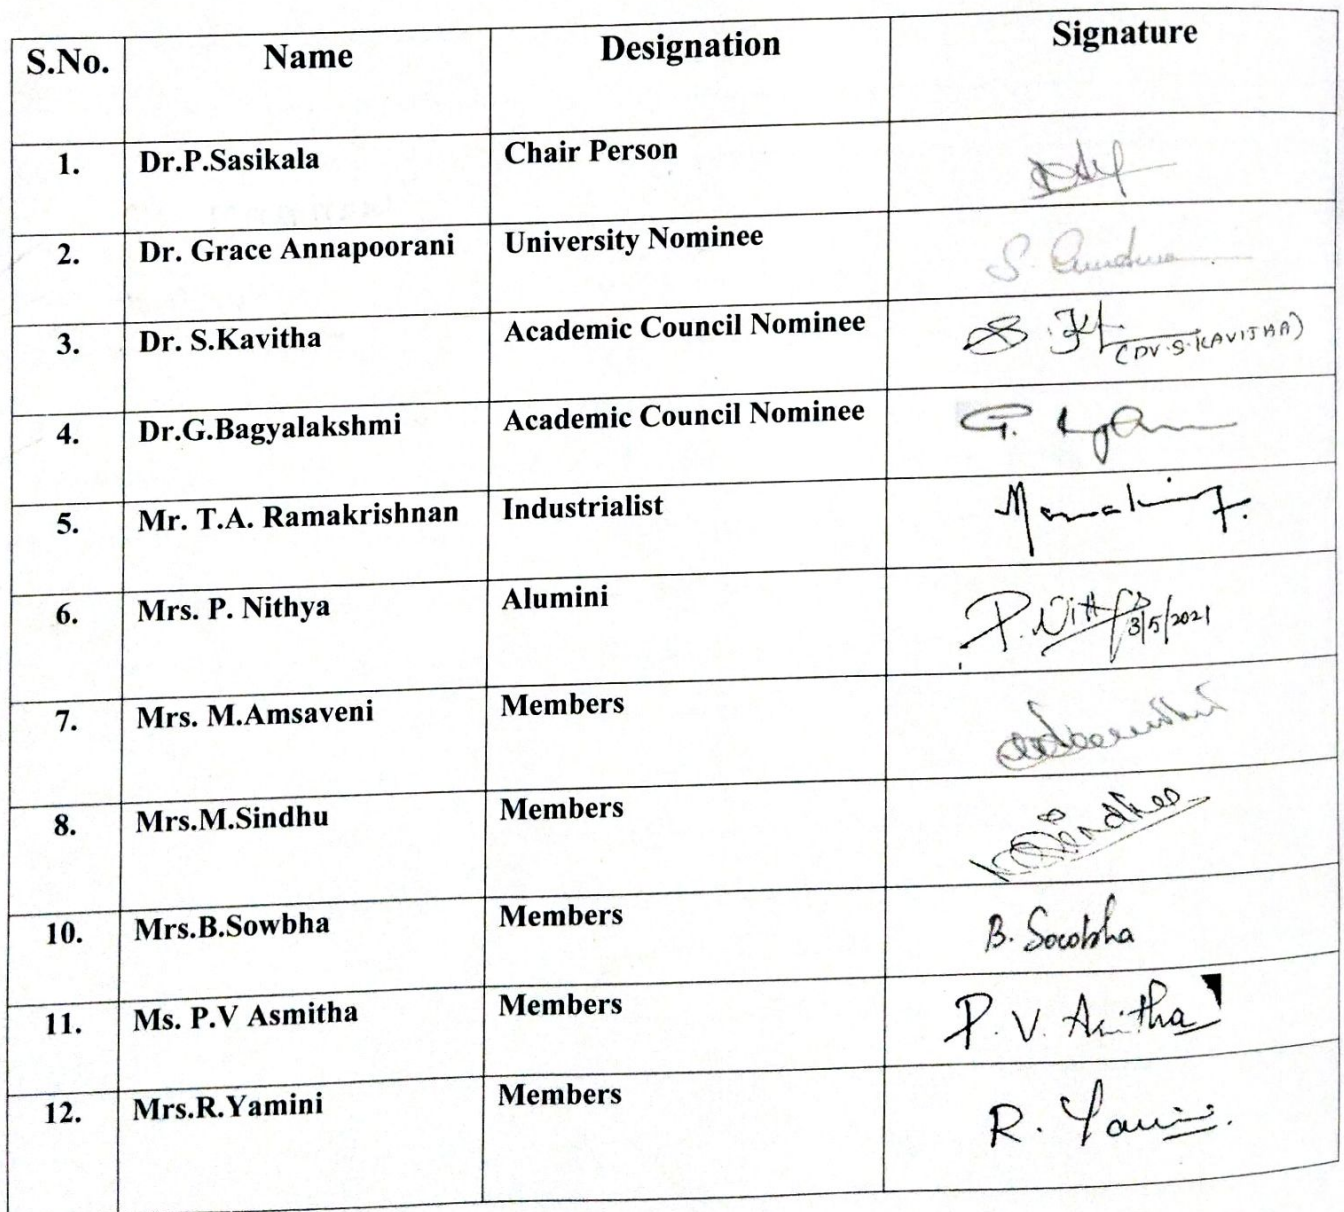 S.No. Name Designation Signature
1. Dr.P.Sasikala Chair Person
2. Dr. Grace Annapoorani University Nominee S.
3. Dr. S.Kavitha Academic Council Nominee S. (Dr.S.KAVITHA)
4. Dr.G.Bagyalakshmi Academic Council Nominee G.
5. Mr. T.A. Ramakrishnan Industrialist
6. Mrs. P. Nithya Alumini P. 3/5/2021
7. Mrs. M.Amsaveni Members
8. Mrs.M.Sindhu Members
10. Mrs.B.Sowbha Members B. Sowbha
11. Ms. P.V Asmitha Members P. V. Asmitha
12. Mrs.R.Yamini Members R. Yamini.